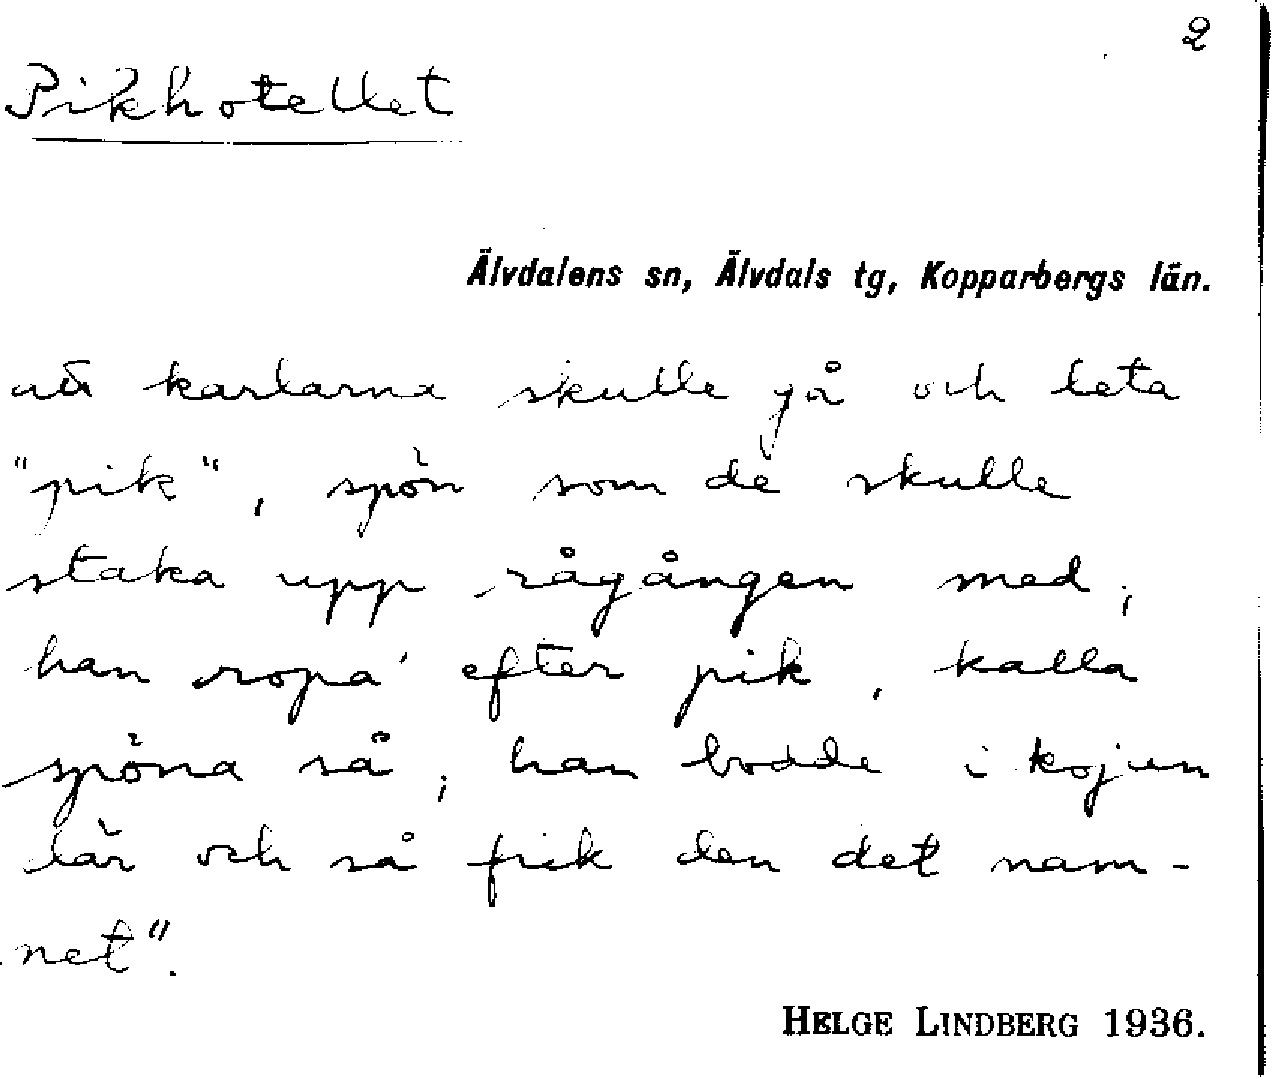 2
Pikhotellet
Älvdalens sn, Älvdals tg, Kopparbergs län.
att karlarna skulle gå och leta
"pik", spön som de skulle
staka upp rågången med;
han ropa' efter pik, kalla
spöna så; han bodde i kojun
där och så fick den det nam-
net".
HELGE LINDBERG 1936.